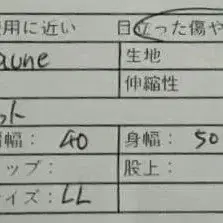 用に近い 目立った傷や
aune 生地
伸縮性
ット
幅： 40 身幅： 50
ップ： 股上：
イズ： LL